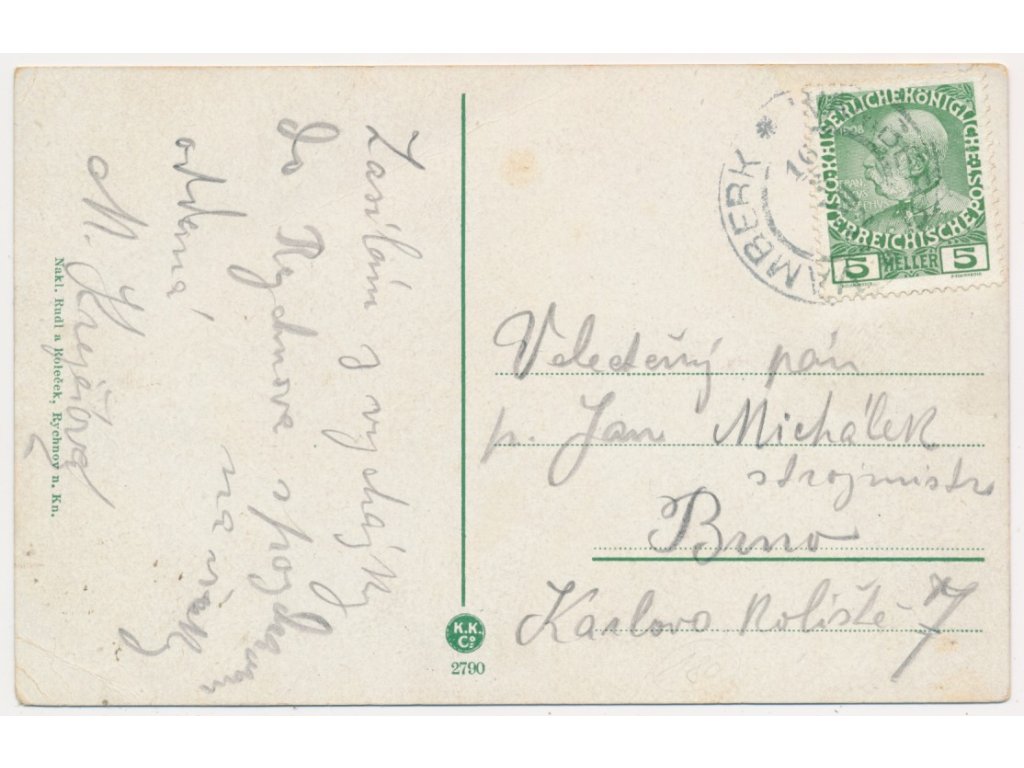 Zasílám z vycházky
do Rychnova s pozdravem
na vždy
oddaná
M. Krejčová
Nakl. Rudl a Koleček, Rychnov n. Kn.
K.K.
Co
2790
AMBERK *
16
KAISERLICHE KÖNIGLICHE
ÖSTERREICHISCHE POST
1908
5 HELLER 5
Veleděný pán
p. Jan Michálek
strojmistr
Brno
Karlovo Koliště 7